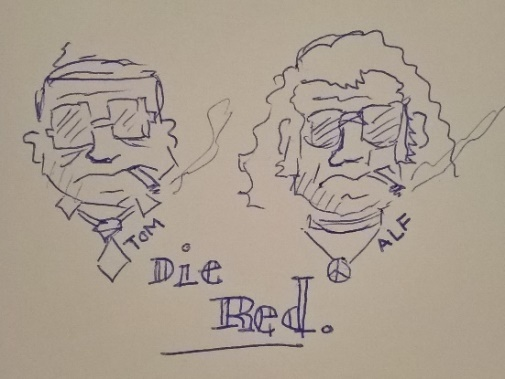 TOM
ALF
Die
Red.